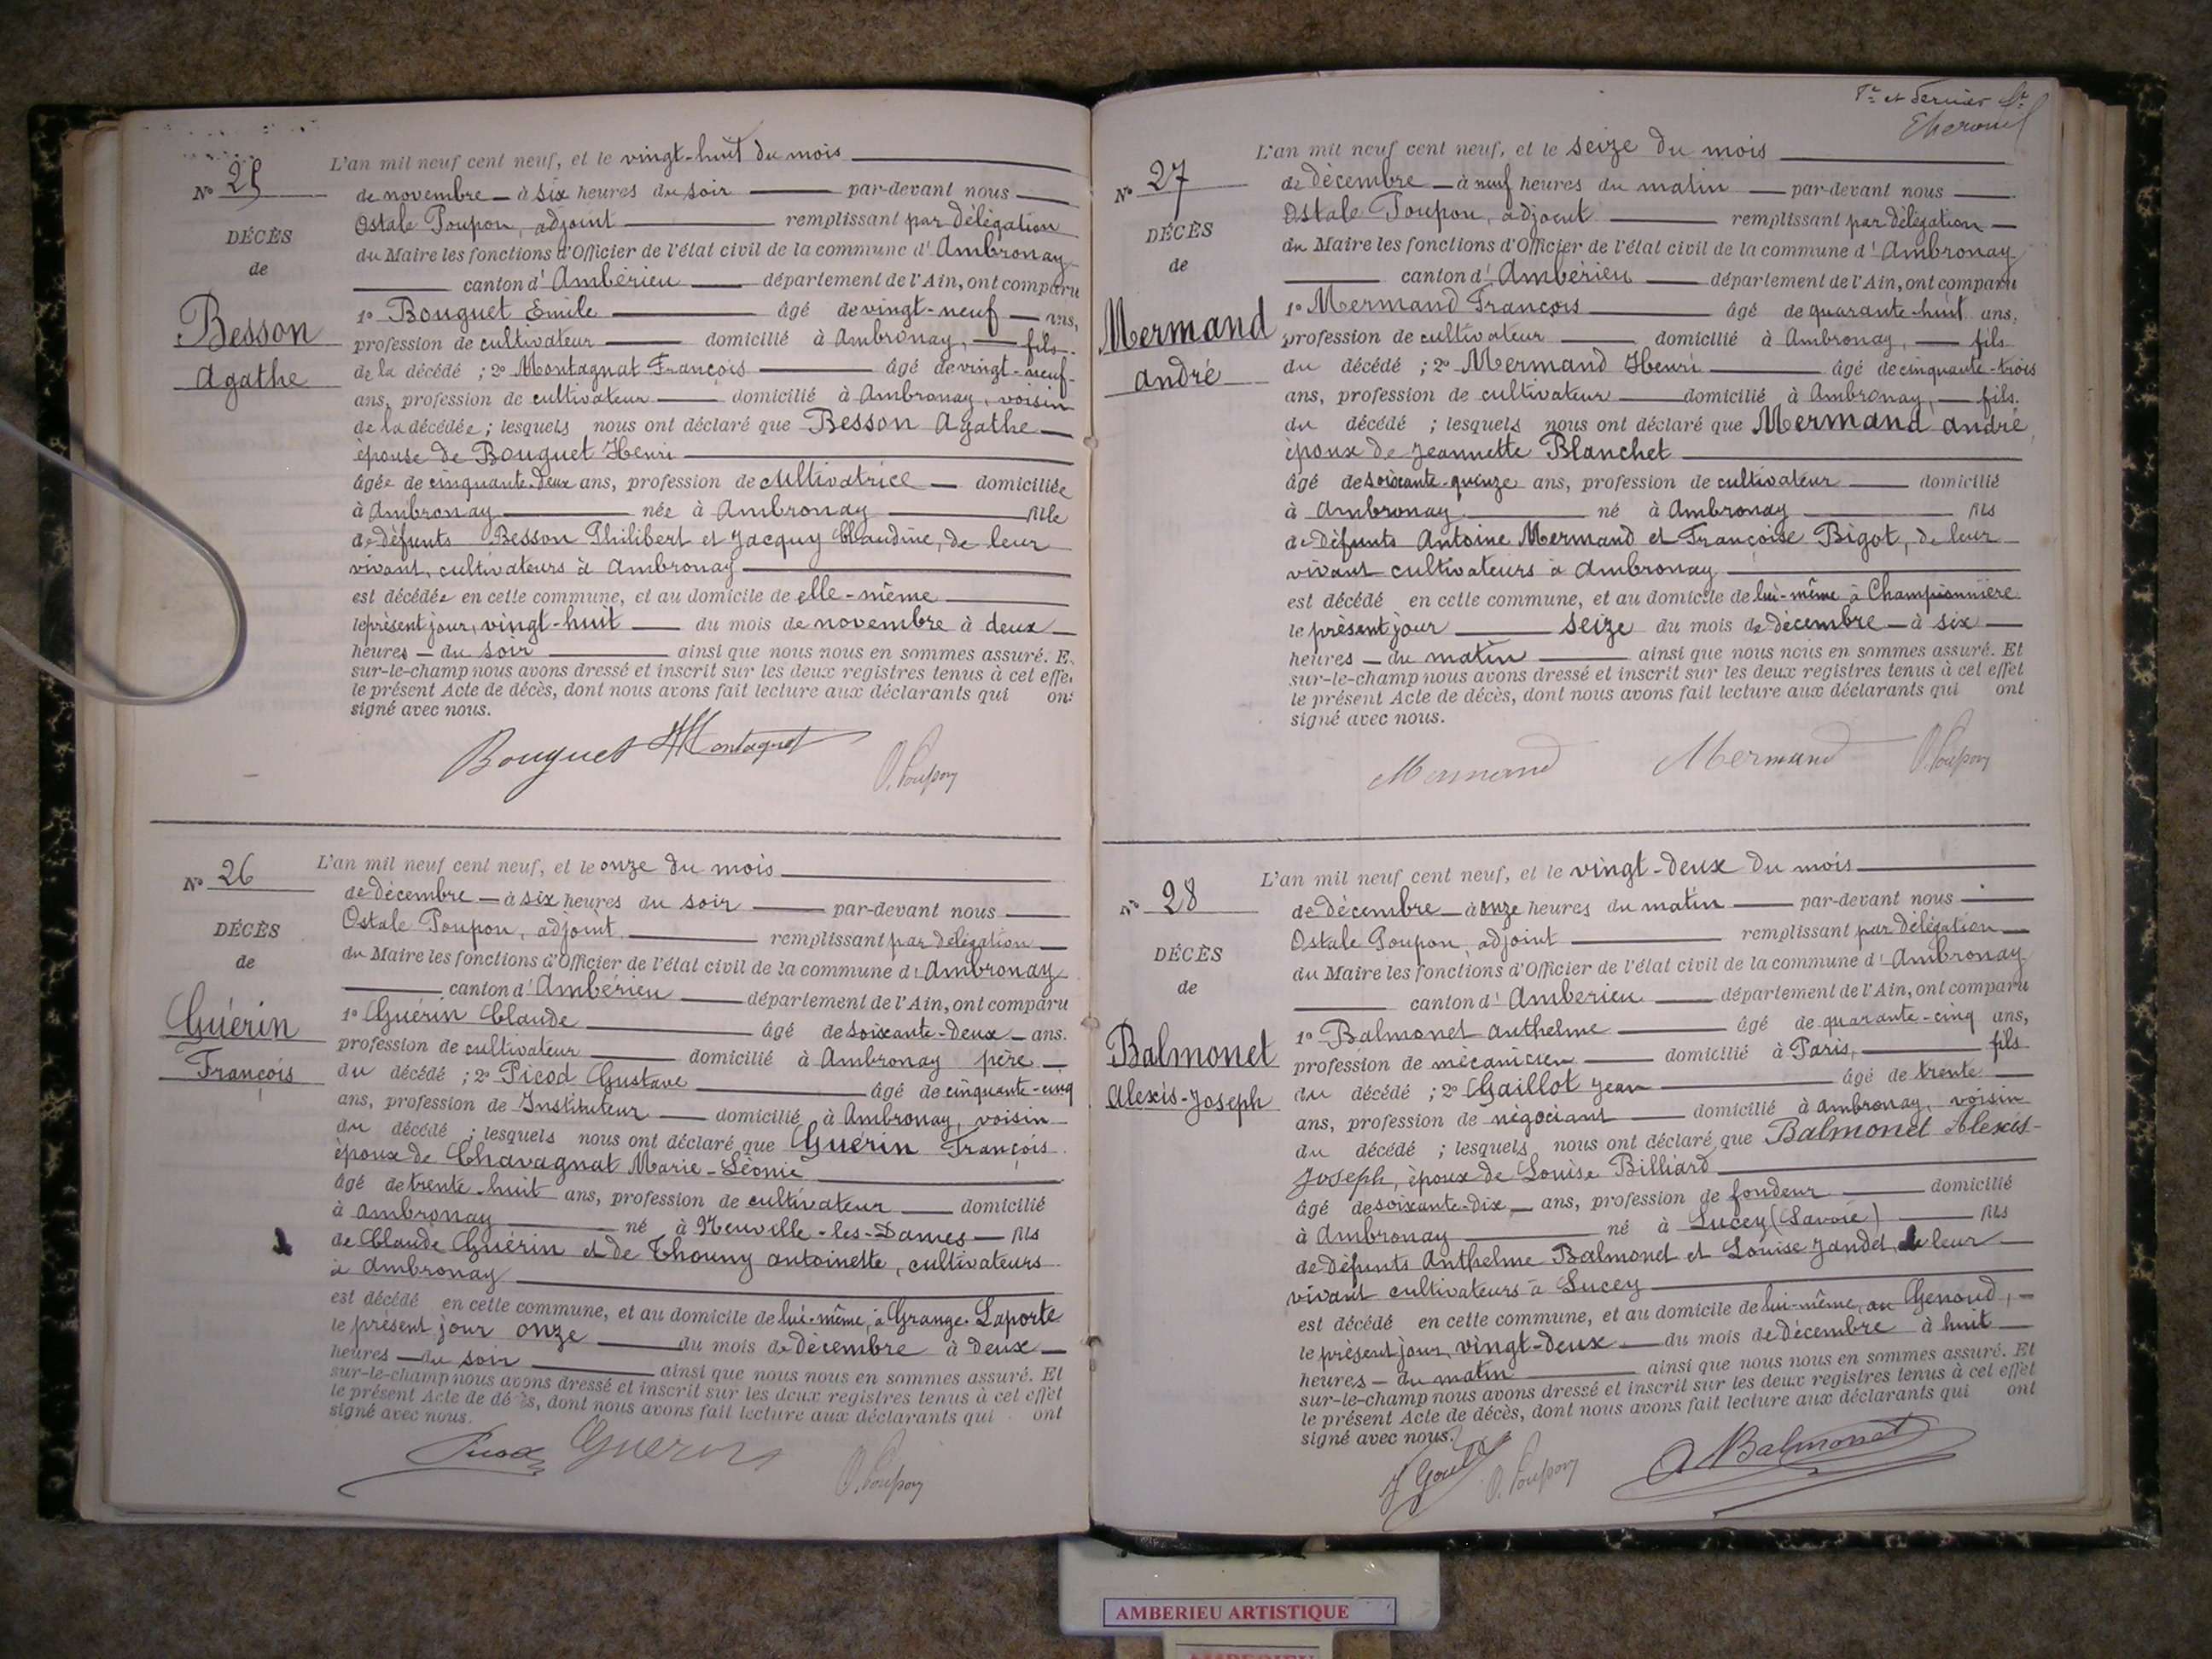 N° 25
DÉCÈS
de
Besson
Agathe
L'an mil neuf cent neuf, et le vingt-huit du mois
de novembre — à six heures du soir — par-devant nous —
Ostale Poupon, adjoint — remplissant par délégation
du Maire les fonctions d'Officier de l'état civil de la commune d'Ambronay
— canton d'Ambérieu — département de l'Ain, ont comparu
1° Bouguet Emile — âgé de vingt-neuf — ans,
profession de cultivateur — domicilié à Ambronay, — fils
de la décédé ; 2° Montagnat François — âgé de vingt-neuf
ans, profession de cultivateur — domicilié à Ambronay, voisin
de la décédée ; lesquels nous ont déclaré que Besson Agathe —
épouse de Bouguet Henri —
âgée de cinquante-deux ans, profession de cultivatrice — domiciliée
à Ambronay — née à Ambronay — fille
de défunts Besson Philibert et Jacquy Claudine, de leur
vivant, cultivateurs à Ambronay —
est décédée en cette commune, et au domicile de elle-même —
le présent jour, vingt-huit — du mois de novembre à deux —
heures — du soir — ainsi que nous nous en sommes assuré. E
sur-le-champ nous avons dressé et inscrit sur les deux registres tenus à cet effe
le présent Acte de décès, dont nous avons fait lecture aux déclarants qui ont
signé avec nous.
Bouguet Montagnat O. Poupon
N° 26
DÉCÈS
de
Guérin
François
L'an mil neuf cent neuf, et le onze du mois
de décembre — à six heures du soir — par-devant nous —
Ostale Poupon, adjoint — remplissant par délégation —
du Maire les fonctions d'Officier de l'état civil de la commune d'Ambronay
— canton d'Ambérieu — département de l'Ain, ont comparu
1° Guérin Claude — âgé de soixante-deux — ans.
profession de cultivateur — domicilié à Ambronay père —
du décédé ; 2° Picod Gustave — âgé de cinquante-cinq
ans, profession de Instituteur — domicilié à Ambronay, voisin
du décédé ; lesquels nous ont déclaré que Guérin François
époux de Chavagnat Marie-Léonie —
âgé de trente-huit ans, profession de cultivateur — domicilié
à Ambronay — né à Neuville-les-Dames — fils
de Claude Guérin et de Thouny Antoinette, cultivateurs
à Ambronay —
est décédé en cette commune, et au domicile de lui-même, à Grange-Laporte
le présent jour onze — du mois de décembre à deux —
heures — du soir — ainsi que nous nous en sommes assuré. Et
sur-le-champ nous avons dressé et inscrit sur les deux registres tenus à cet effet
le présent Acte de décès, dont nous avons fait lecture aux déclarants qui ont
signé avec nous.
Picod Guérin O. Poupon
et dernier
N° 27
DÉCÈS
de
Mermand
André
L'an mil neuf cent neuf, et le seize du mois —
de décembre — à neuf heures du matin — par-devant nous —
Ostale Poupon, adjoint — remplissant par délégation —
du Maire les fonctions d'Officier de l'état civil de la commune d'Ambronay
— canton d'Ambérieu — département de l'Ain, ont comparu
1° Mermand François — âgé de quarante-huit ans,
profession de cultivateur — domicilié à Ambronay, — fils
du décédé ; 2° Mermand Henri — âgé de cinquante-trois
ans, profession de cultivateur — domicilié à Ambronay, — fils.
du décédé ; lesquels nous ont déclaré que Mermand André,
époux de Jeannette Blanchet —
âgé de soixante-quinze ans, profession de cultivateur — domicilié
à Ambronay — né à Ambronay — fils
de défunts Antoine Mermand et Françoise Bigot, de leur
vivant cultivateurs à Ambronay —
est décédé en cette commune, et au domicile de lui-même à Championnière
le présent jour — seize du mois de décembre — à six —
heures — du matin — ainsi que nous nous en sommes assuré. Et
sur-le-champ nous avons dressé et inscrit sur les deux registres tenus à cet effet
le présent Acte de décès, dont nous avons fait lecture aux déclarants qui ont
signé avec nous.
Mermand Mermand O. Poupon
N° 28
DÉCÈS
de
Balmonet
Alexis-Joseph
L'an mil neuf cent neuf, et le vingt-deux du mois —
de décembre — à onze heures du matin — par-devant nous —
Ostale Poupon, adjoint — remplissant par délégation —
du Maire les fonctions d'Officier de l'état civil de la commune d'Ambronay
— canton d'Amberieu — département de l'Ain, ont comparu
1° Balmonet Anthelme — âgé de quarante-cinq ans,
profession de mécanicien — domicilié à Paris, — fils
du décédé ; 2° Gaillot Jean — âgé de trente —
ans, profession de négociant — domicilié à Ambronay, voisin
du décédé ; lesquels nous ont déclaré que Balmonet Alexis-
Joseph, époux de Louise Billiard —
âgé de soixante-dix — ans, profession de fondeur — domicilié
à Ambronay — né à Lucey (Savoie) — fils
de défunts Anthelme Balmonet et Louise Jandet, de leur —
vivant cultivateurs à Lucey —
est décédé en cette commune, et au domicile de lui-même, au Genoud, —
le présent jour, vingt-deux — du mois de décembre à huit —
heures — du matin — ainsi que nous nous en sommes assuré. Et
sur-le-champ nous avons dressé et inscrit sur les deux registres tenus à cet effet
le présent Acte de décès, dont nous avons fait lecture aux déclarants qui ont
signé avec nous.
O. Poupon A Balmonet
AMBERIEU ARTISTIQUE
AMBERIEU